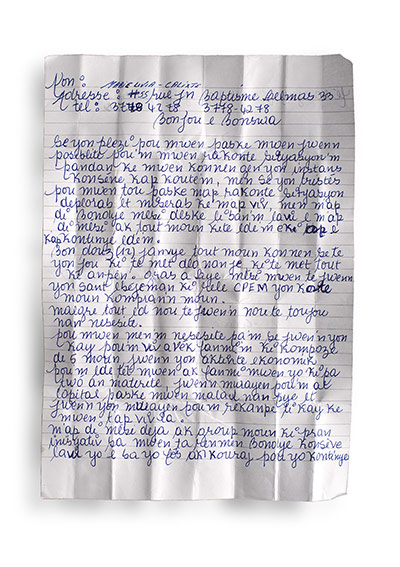 Non : MARCUNA-CALIXTE
Adresse : #55 rue Jn Baptisme Delmas 33
tel : 3778 4278 3778-4278
Bonjou e Bonswa
Se yon plezi pou mwen paske mwen jwenn
posiblite pou'm mwen rakonte sityasyon'm
pandan ke mwen konnen gen yon instans
konsène kap koute'm, men se yon tristes
pou mwen tou paske map rakonte sityasyon
deplorab e mizerab ke map viv, men map
di bondye mèsi deske li ban'm lavi e map
di mèsi ak tout moun kite ede'm e ki
kontinye ede'm.
Bon douz (12) janvye tout moun konnen se te
yon jou ki te mèt dlo nan je ki te mèt tout
ki anpèn. gras a Dye, mèsi mwen te jwenn
yon sant ebèjeman ki rele CPEM yon kote
moun konprann moun.
malgre tout èd nou te jwenn nou te toujou
nan nesesite.
pou mwen menm nesesite pa'm se jwenn yon
kay pou'm viv avèk fanmi'm ki konpoze
de moun, jwenn yon aktivite ekonomik
pou'm ede tèt mwen ak fanmi mwen yo ki pa
two an matirite, jwenn mwayen pou'm al
lopital paske mwen malad nan pye et
jwenn yon mwayen pou'm rekanpe ti kay ke
mwen t'ap viv la.
map di mèsi deja ak group moun ki pran
inisyativ sa mwen ta renmen bondye konsève
lavi yo e ba yo fòs ak kouraj pou yo kontinye